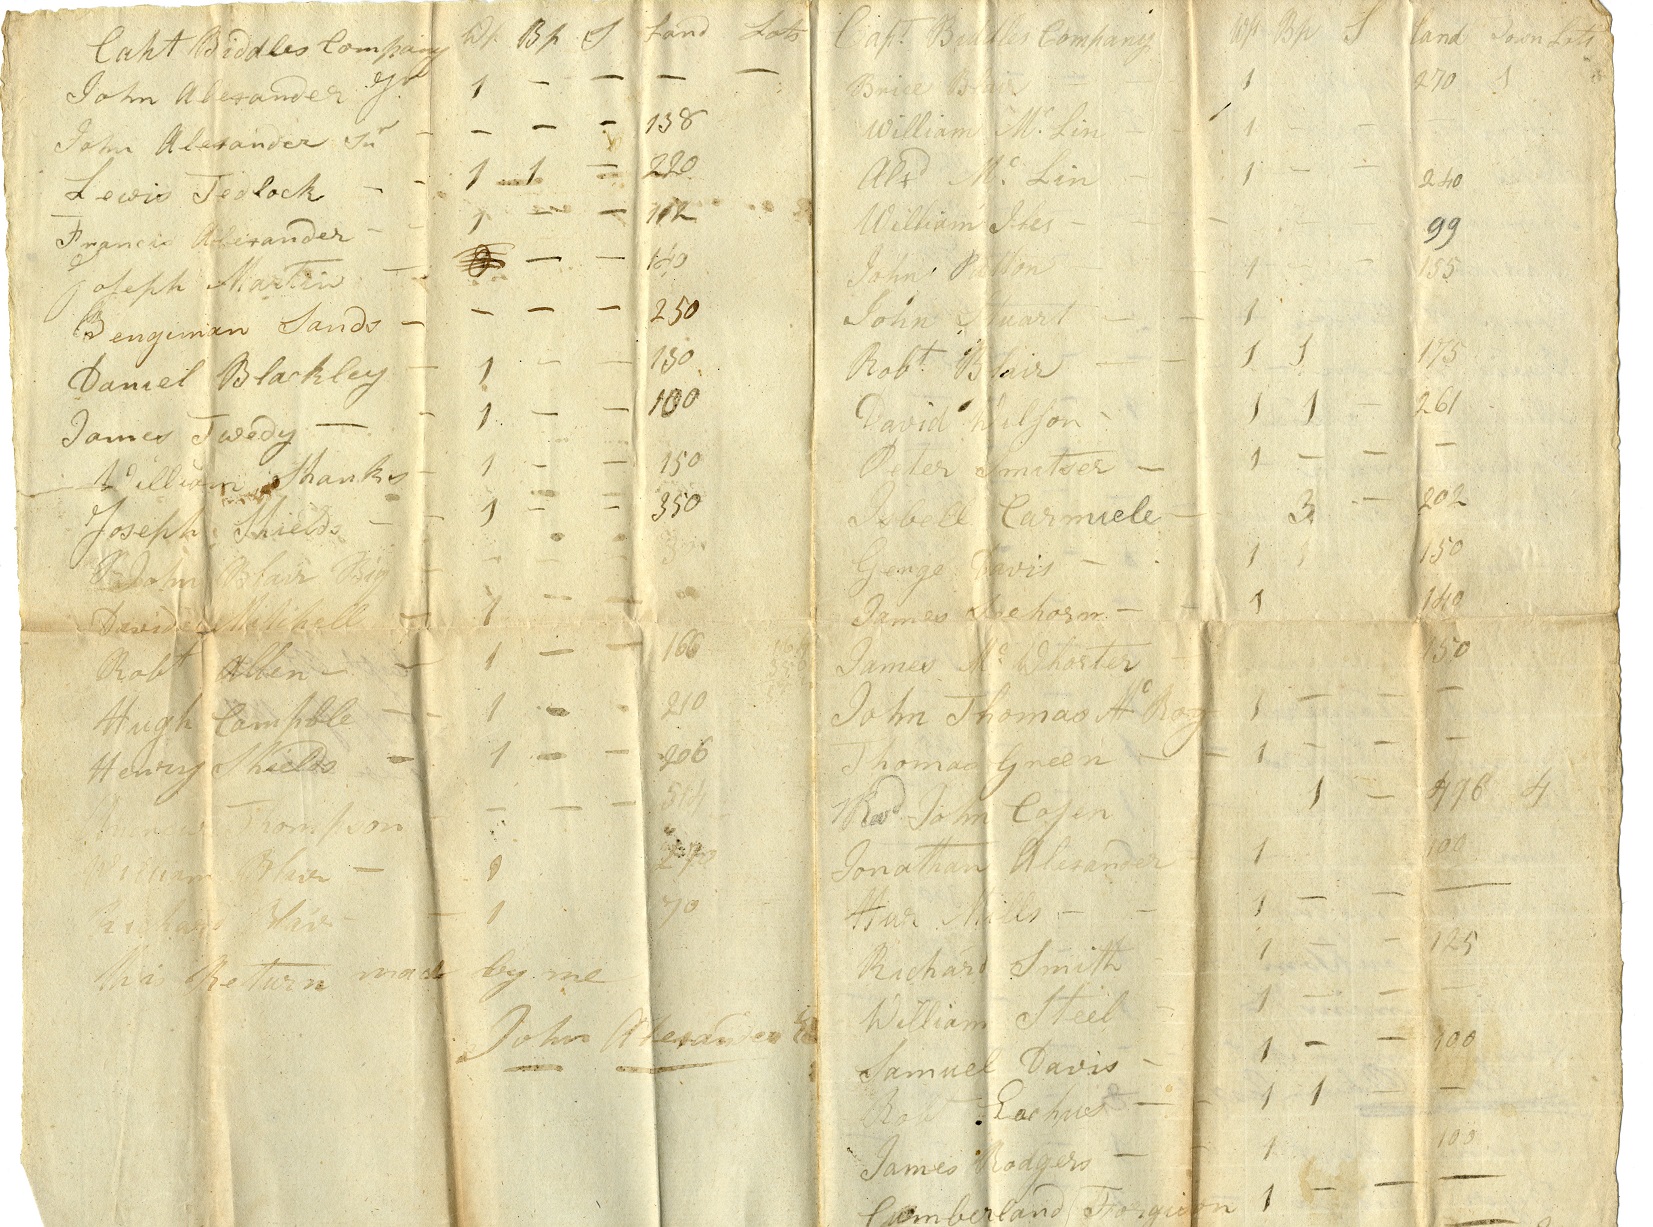 Capt Biddles Company Wp Bp S Land Lots
John Alexander Jr 1 - - - -
John Alexander Snr - - - - 138
Lewis Tedlock - - 1 1 - 220
Francis Alexander - - 1 - - 112
Joseph Martin - - - 140
Bengiman Sands - - - - 250
Daniel Blackley - 1 - - 130
James Twedy - - 1 - - 100
William Shanks - 1 - - 150
Joseph Shields - - 1 - - 350
John Blair Big - - - -
David Mitchell - 1 - -
Robt Allen - - 1 - - 166
Hugh Campble - - 1 - - 210
Henry Shields - 1 - - 206
Thompson - - - - 514
William Blair - 1 270
Richard Blair - - 1 70
this Return mad by me
John Alexander
Capt. Biddles Company Wp Bp S Land Town Lots
Brice Blair - 1 270 1
William Mc Lin - - 1 - - -
Alxd Mc Lin - - 1 - - 240
William Iles - - - - 99
John Patton - 1 - - 155
John Stuart - - 1
Robt. Blair - - 1 1 175
David Wilson - 1 1 - 261
Peter Smitser - 1 - - -
Isbell Carmicle - 3 - 202
Gerge Davis - 1 1 150
James Seehorn - - 1 140
James Mc Whorter - 150
John Thomas Mc Roy 1 - - -
Thomas Green - - 1 - - -
Revd John Cosen 1 - 476 4
Jonathan Alexander 1 100
Hur Mills - - 1 - -
Richard Smith - 1 - - 125
William Steel - 1 - - -
Samuel Davis - 1 - - 100
Robt - - 1 1 - -
James Rodgers - - 1 100
Cumberland Forguson 1 - - -